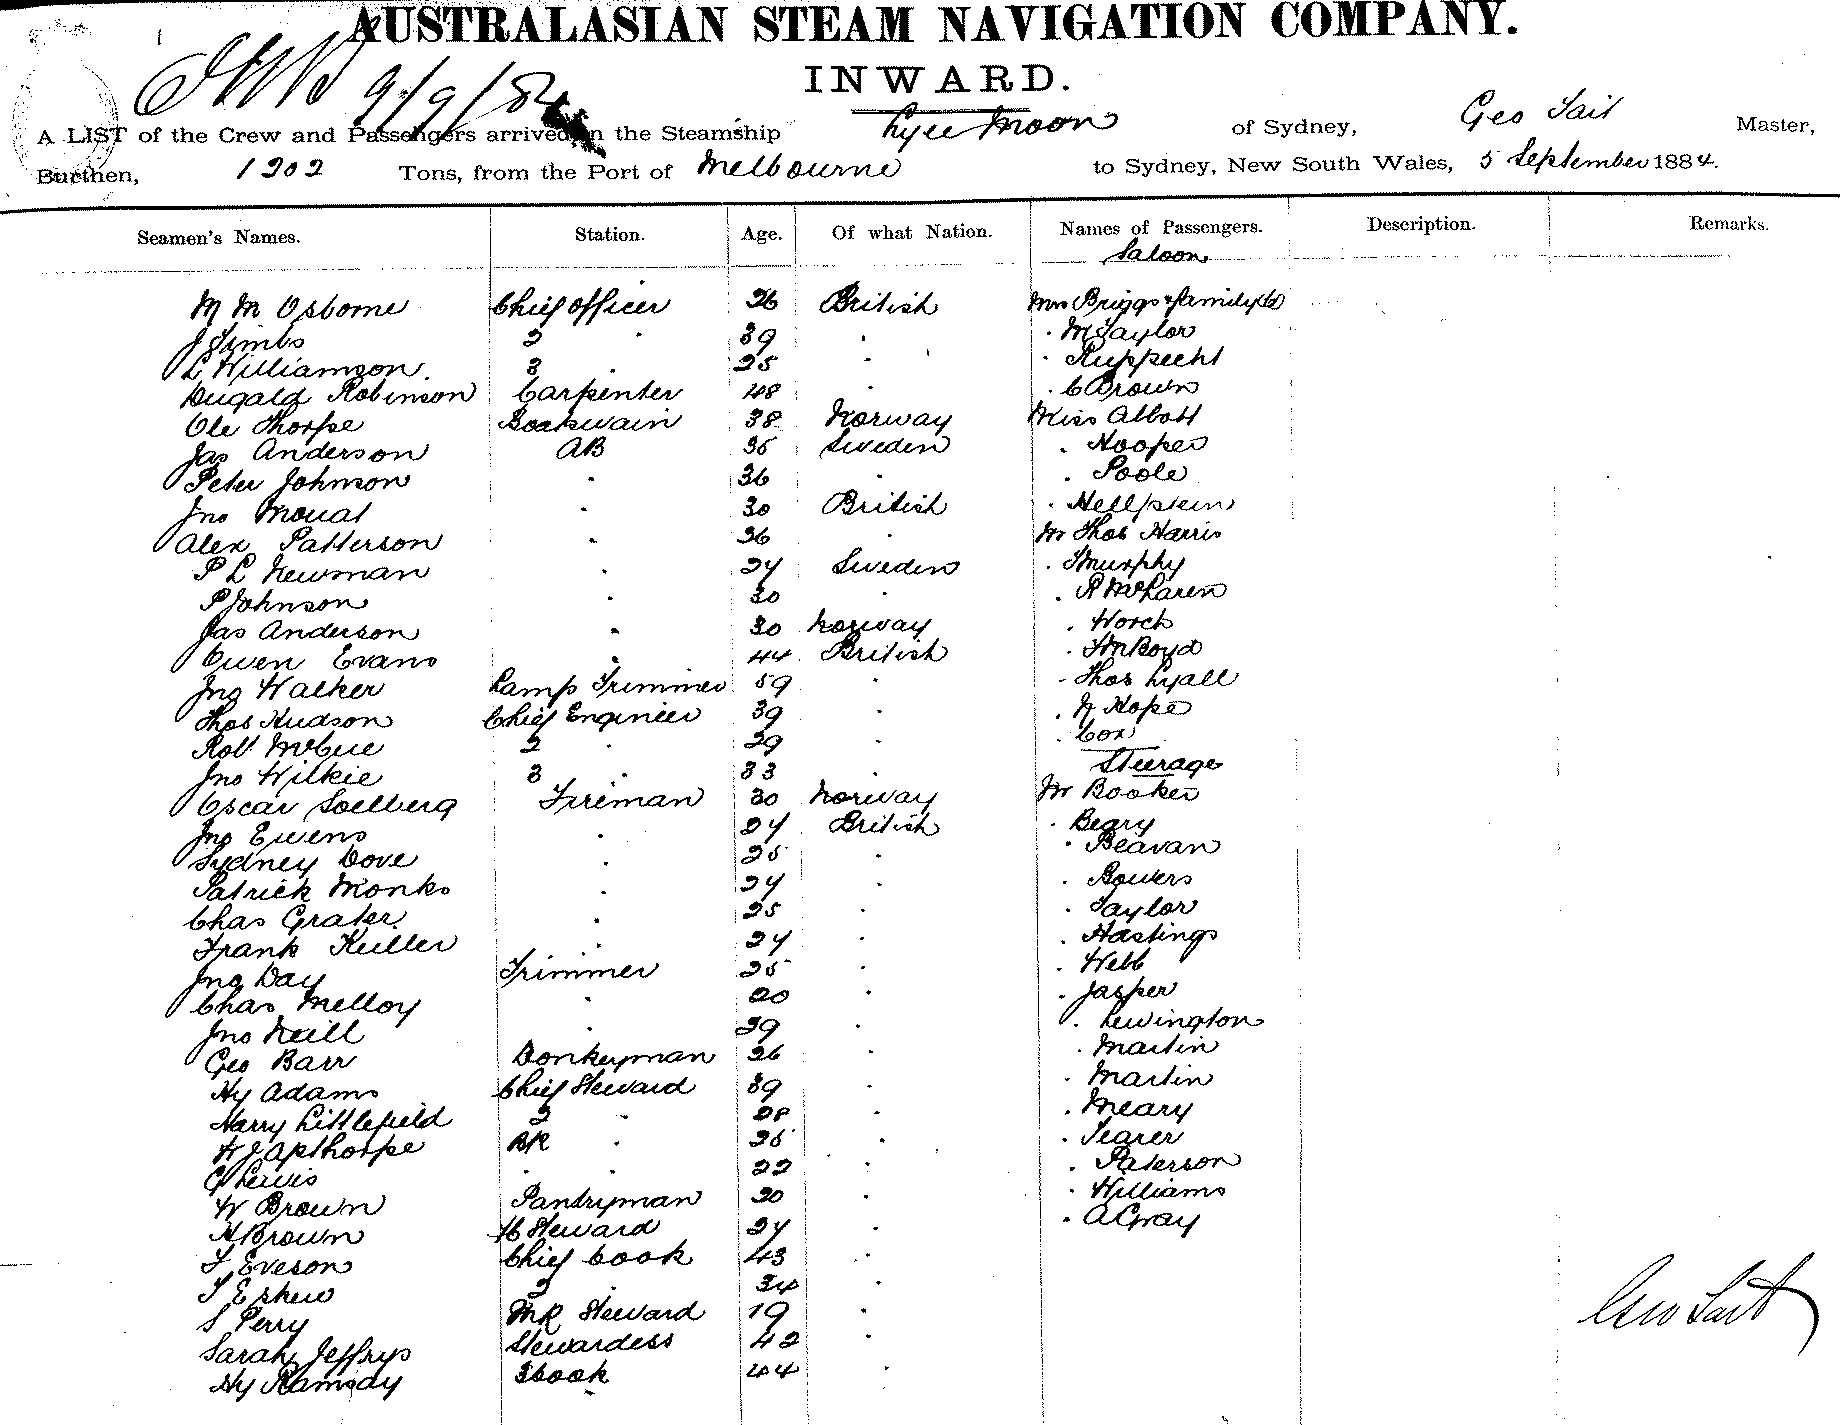 AUSTRALASIAN STEAM NAVIGATION COMPANY.
INWARD.
9/9/84
A LIST of the Crew and Passengers arrived in the Steamship Lyee Moon of Sydney, Geo Tait Master,
Burthen, 1202 Tons, from the Port of Melbourne to Sydney, New South Wales, 5 September 1884.
Seamen's Names. Station. Age. Of what Nation. Names of Passengers. Description. Remarks.
Saloon
M M Osborne Chief Officer 26 British Mrs Briggs & family (6)
J Timbs 2 " 39 " " M Taylor
L Williamson 3 " 25 " " Rupprecht
Dugald Robinson Carpenter 48 " " C Brown
Ole Thorpe Boatswain 38 Norway Miss Abbott
Jas Anderson AB 35 Sweden " Hooper
Peter Johnson " 36 " " Poole
Jno Mouat " 30 British "
Alex Patterson " 36 " Mr Thos Harris
P L Newman " 24 Sweden " T Murphy
P Johnson " 30 " " R McLaren
Jas Anderson " 30 Norway " Worch
Owen Evans " 44 British " Boyd
Jno Walker Lamp Trimmer 59 " " Thos Lyall
Thos Hudson Chief Engineer 39 " " W Hope
Robt McCue 2 " 29 " " Cox
Steerage
Jno Wilkie 3 " 33 "
Oscar Soelberg Fireman 30 Norway Mr Booker
Jno Ewens " 24 British " Begry
Sydney Dove " 25 " " Beavan
Patrick Monks " 24 " " Bowers
Chas Grater " 25 " " Taylor
Frank Kuller " 24 " " Hastings
Jno Day Trimmer 25 " " Webb
Chas Melloy " 20 " " Jasper
Jno Neill " 39 " " Lewington
Geo Barr Donkeyman 26 " " Martin
Hy Adams Chief Steward 39 " " Martin
Harry Littlefield 2 " 28 " " Meary
W J Apthorpe BR " 25 " " Tearer
G Lewis " " 22 " " Paterson
W Brown Pantryman 20 " " Williams
H Brown Steward 24 " " A Gray
F Eveson Chief Cook 43 "
T Eskew 2 " 34 "
S Perry MR Steward 19 "
Sarah Jeffrys Stewardess 42 "
Hy Ramsay 3 Cook 44 "
Geo Tait